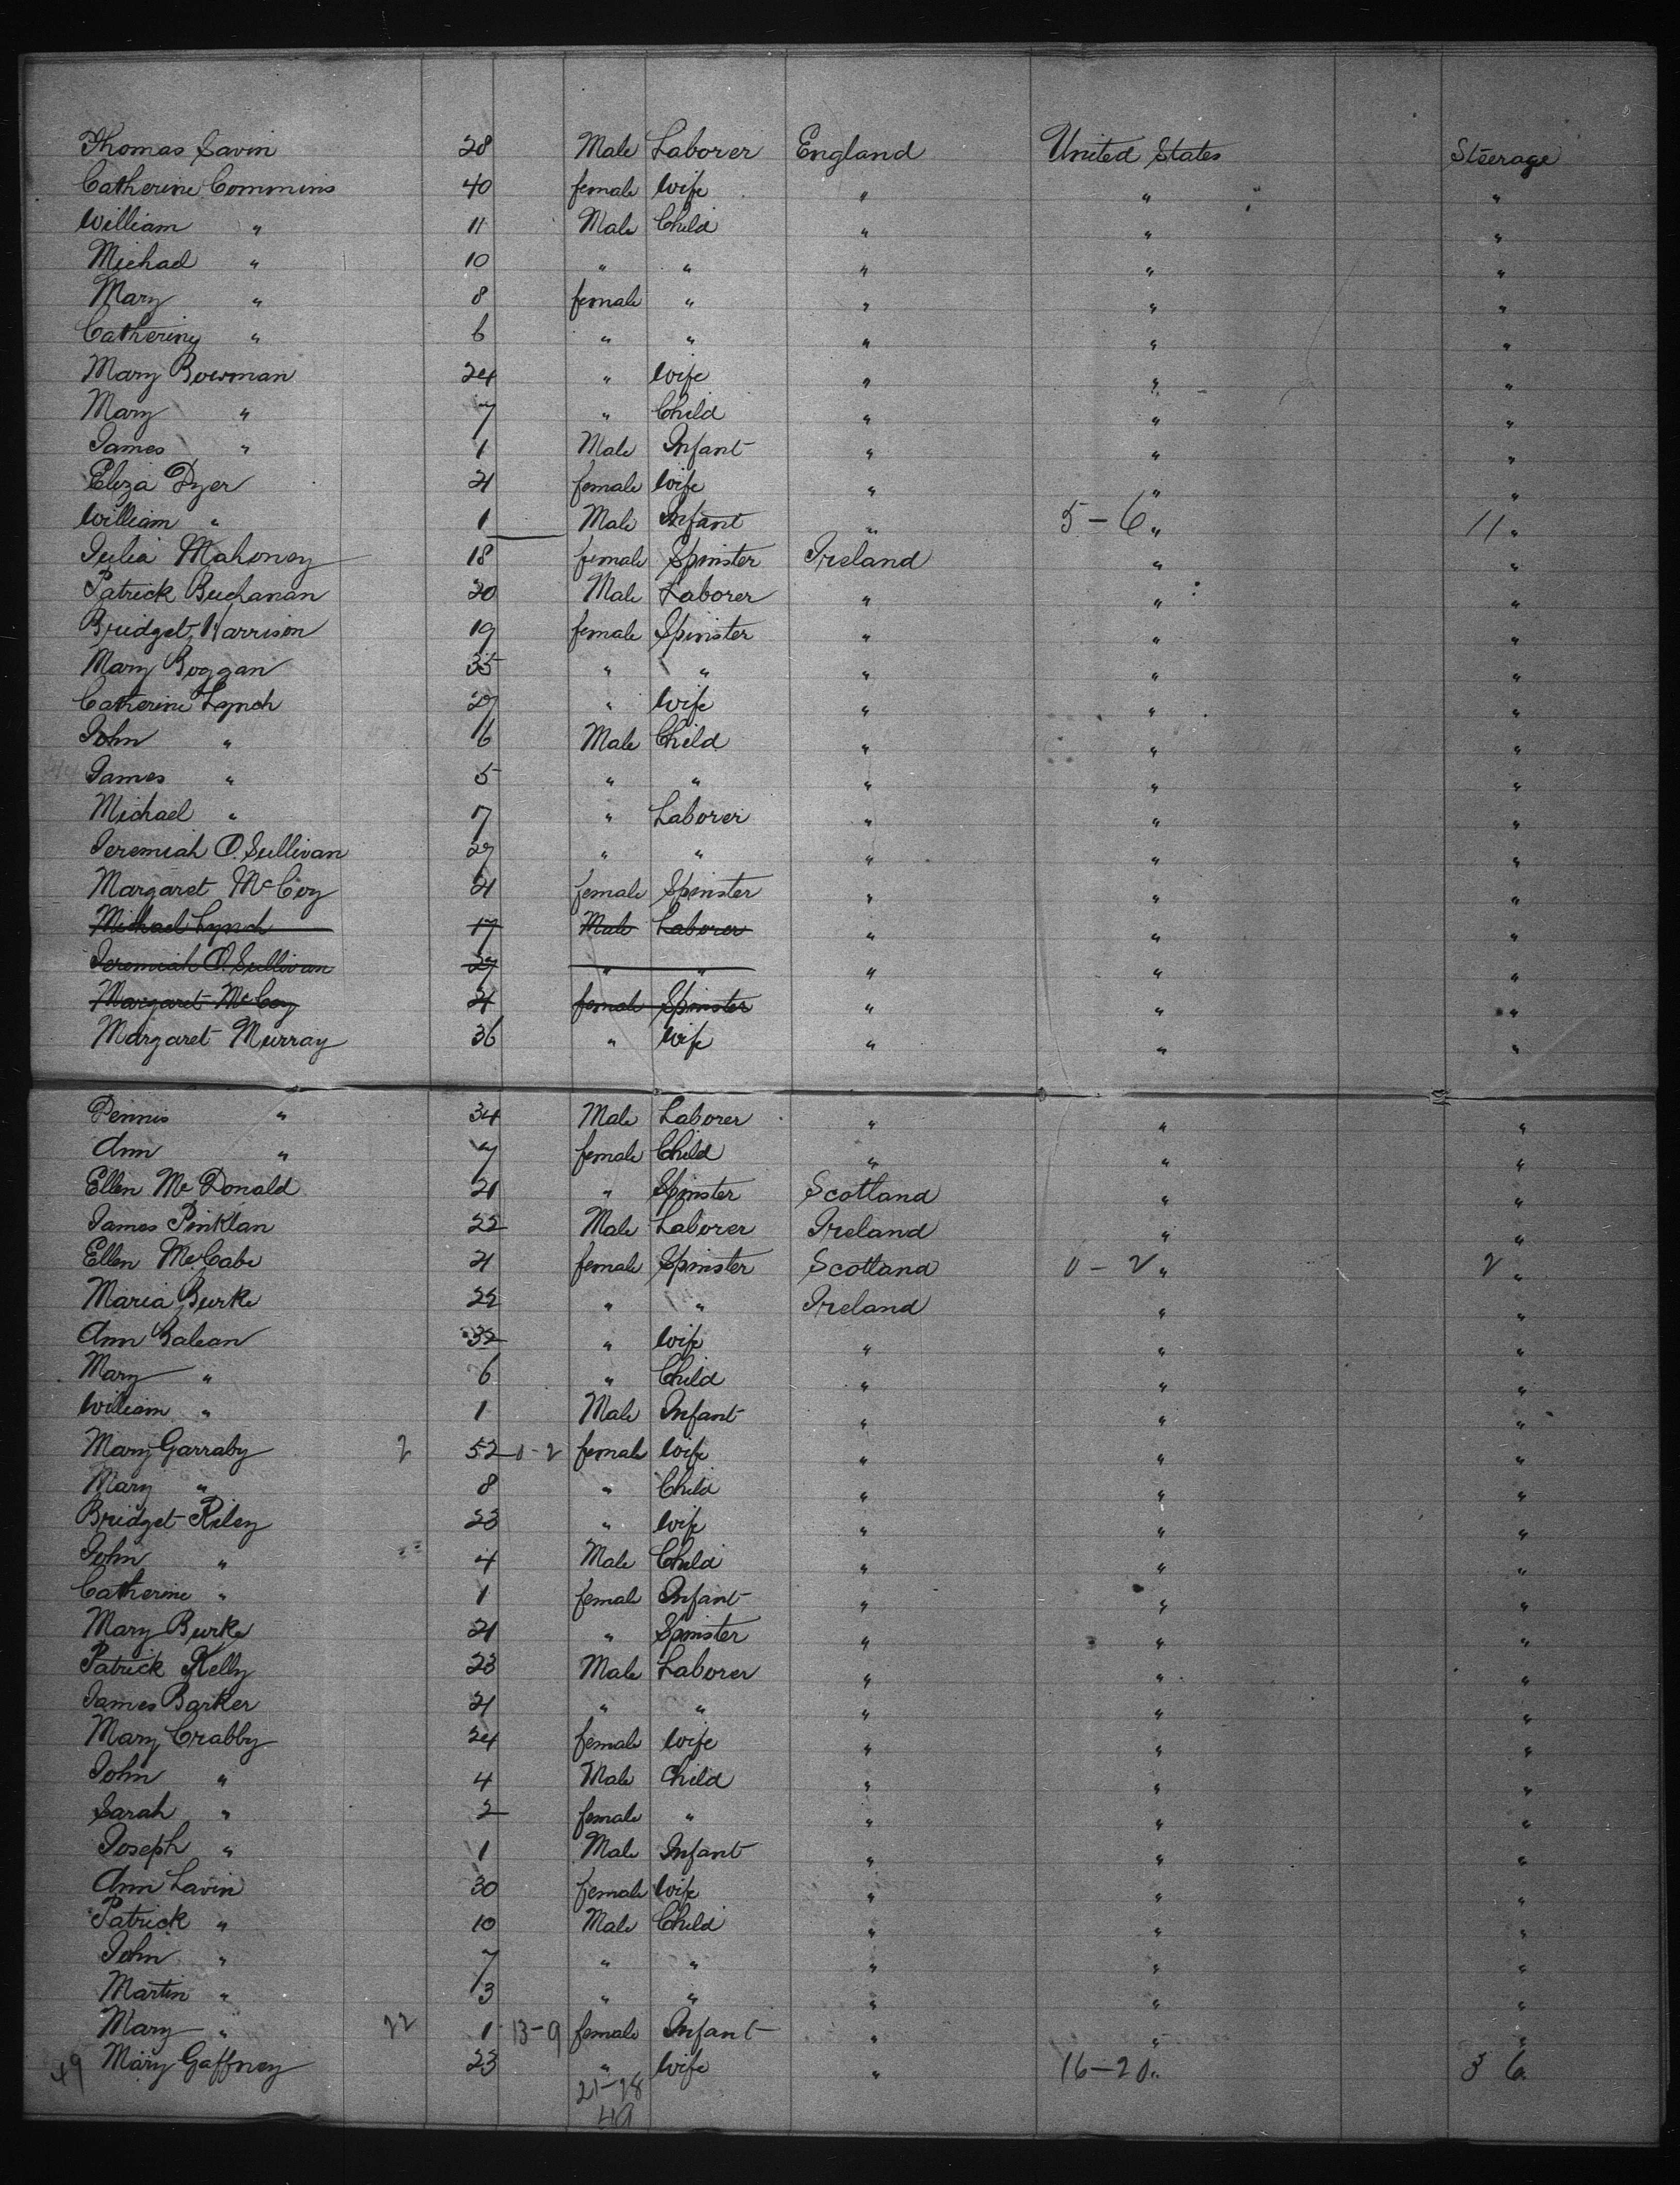 Thomas Savin 28 Male Laborer England United States Steerage
Catherine Commins 40 female wife " " "
William " 11 Male Child " " "
Michael " 10 " " " " "
Mary " 8 female " " " "
Catherine " 6 " " " " "
Mary Bowman 24 " wife " " "
Mary " 7 " Child " " "
James " 1 Male Infant " " "
Eliza Dyer 21 female wife " " "
William " 1 Male Infant " 5-6 " 11 "
Julia Mahoney 18 female Spinster Ireland " "
Patrick Buchanan 20 Male Laborer " " "
Bridget Harrison 19 female Spinster " " "
Mary Boggan 35 " " " " "
Catherine Lynch 27 " wife " " "
John " 6 Male Child " " "
James " 5 " " " " "
Michael " 17 " Laborer " " "
Jeremiah O.Sullivan 27 " " " " "
Margaret McCoy 21 female Spinster " " "
Michael Lynch 17 Male Laborer " " "
Jeremiah O.Sullivan 27 " " " " "
Margaret McCoy 21 female Spinster " " "
Margaret Murray 36 " wife " " "
Dennis " 34 Male Laborer " " "
Ann " 7 female Child " " "
Ellen McDonald 21 " Spinster Scotland " "
James Pinklan 22 Male Laborer Ireland " "
Ellen McCabe 21 female Spinster Scotland 0-2 " 2 "
Maria Burke 22 " " Ireland " "
Ann 32 " wife " " "
Mary " 6 " Child " " "
William " 1 Male Infant " " "
Mary Garraby 2 52 0-2 female wife " " "
Mary " 8 " Child " " "
Bridget Riley 23 " wife " " "
John " 4 Male Child " " "
Catherine " 1 female Infant " " "
Mary Burke 21 " Spinster " " "
Patrick Kelly 23 Male Laborer " " "
James Barker 21 " " " " "
Mary Crabby 24 female wife " " "
John " 4 Male Child " " "
Sarah " 2 female " " " "
Joseph " 1 Male Infant " " "
Ann Lavin 30 female wife " " "
Patrick " 10 Male Child " " "
John " 7 " " " " "
Martin " 3 " " " " "
Mary " 22 1 13-9 female Infant " " "
49 Mary Gaffney 23 " wife " 16-20 " 36
21-28
49